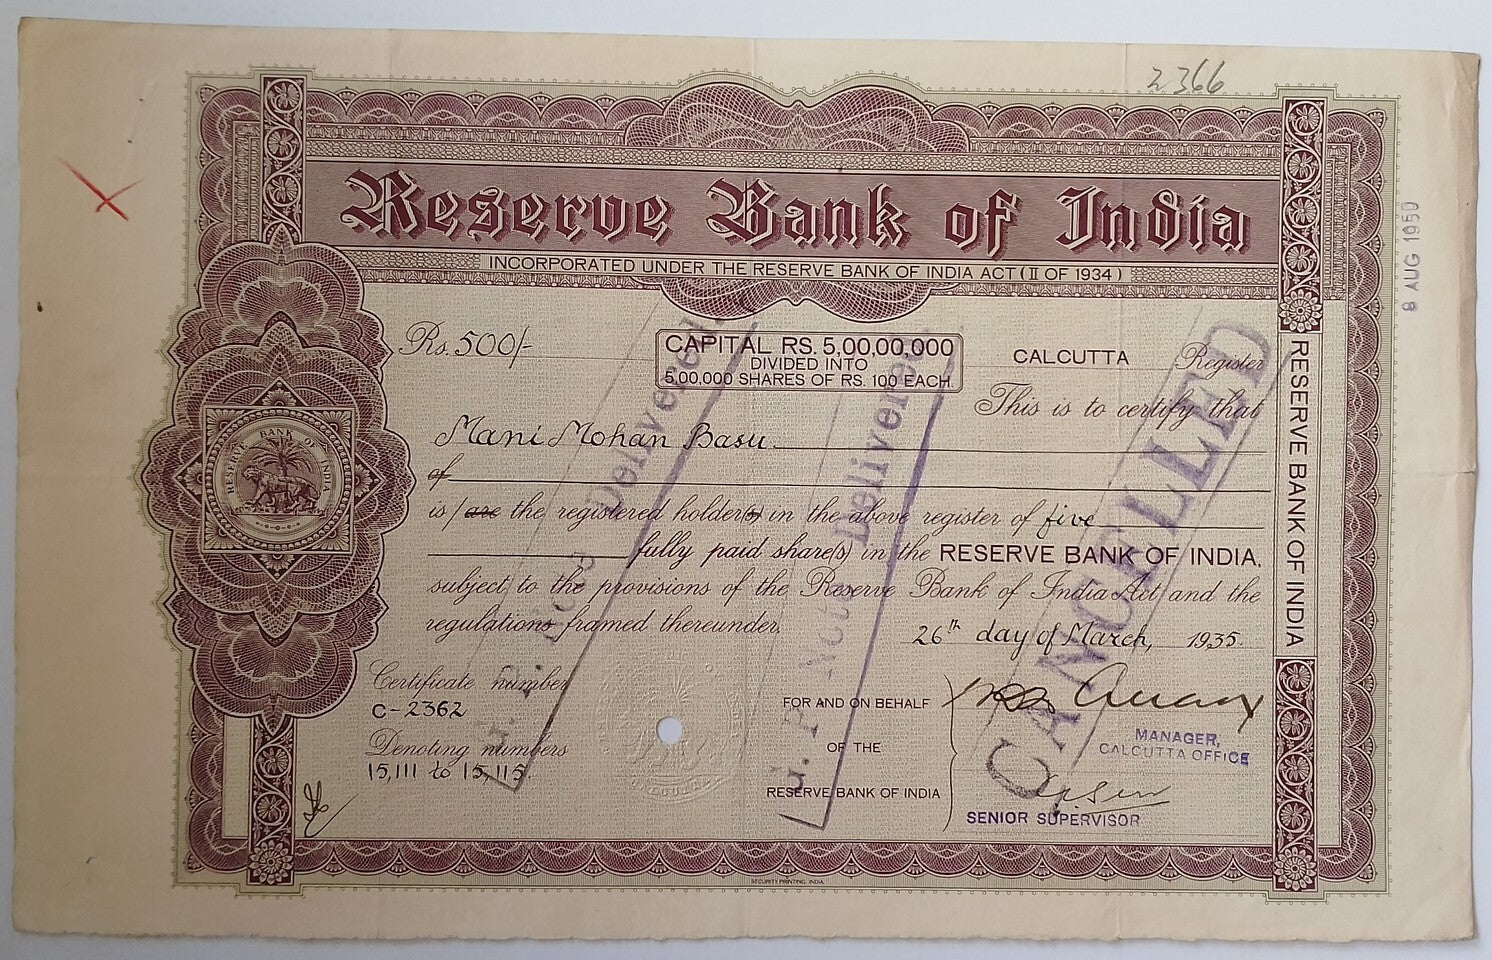 2366
Reserve Bank of India
INCORPORATED UNDER THE RESERVE BANK OF INDIA ACT (II OF 1934)
8 AUG 1950
Rs. 500/-
CAPITAL RS. 5,00,00,000
DIVIDED INTO
5,00,000 SHARES OF RS. 100 EACH
CALCUTTA Register
This is to certify that
Mani Mohan Basu
of
is / are the registered holder(s) in the above register of five
fully paid share(s) in the RESERVE BANK OF INDIA,
subject to the provisions of the Reserve Bank of India Act and the
regulations framed thereunder.
26th day of March, 1935.
Certificate number
C-2362
Denoting numbers
15,111 to 15,115
FOR AND ON BEHALF
OF THE
RESERVE BANK OF INDIA
MANAGER,
CALCUTTA OFFICE
SENIOR SUPERVISOR
RESERVE BANK OF INDIA
RESERVE BANK OF INDIA
CANCELLED
G. P. Notes Delivered.
G. P. Notes Delivered.
SECURITY PRINTING, INDIA.